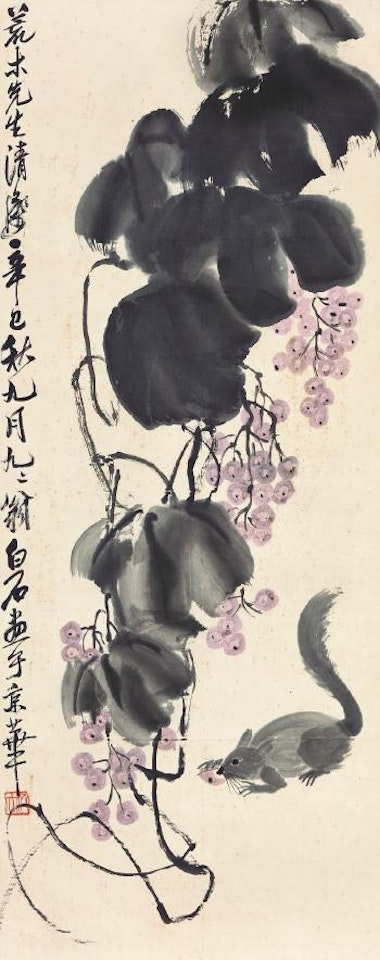 荒木先生清鑒辛巳秋九月九〻翁白石畫于京華